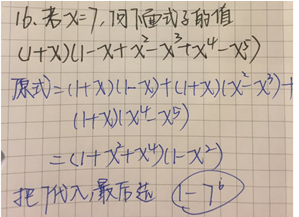 16.若x=7,问下面式子的值
(1+x)(1-x+x²-x³+x⁴-x⁵)
原式=(1+x)(1-x)+(1+x)(x²-x³)+
(1+x)(x⁴-x⁵)
=(1+x²+x⁴)(1-x²)
把7代入,最后是 1-7⁶